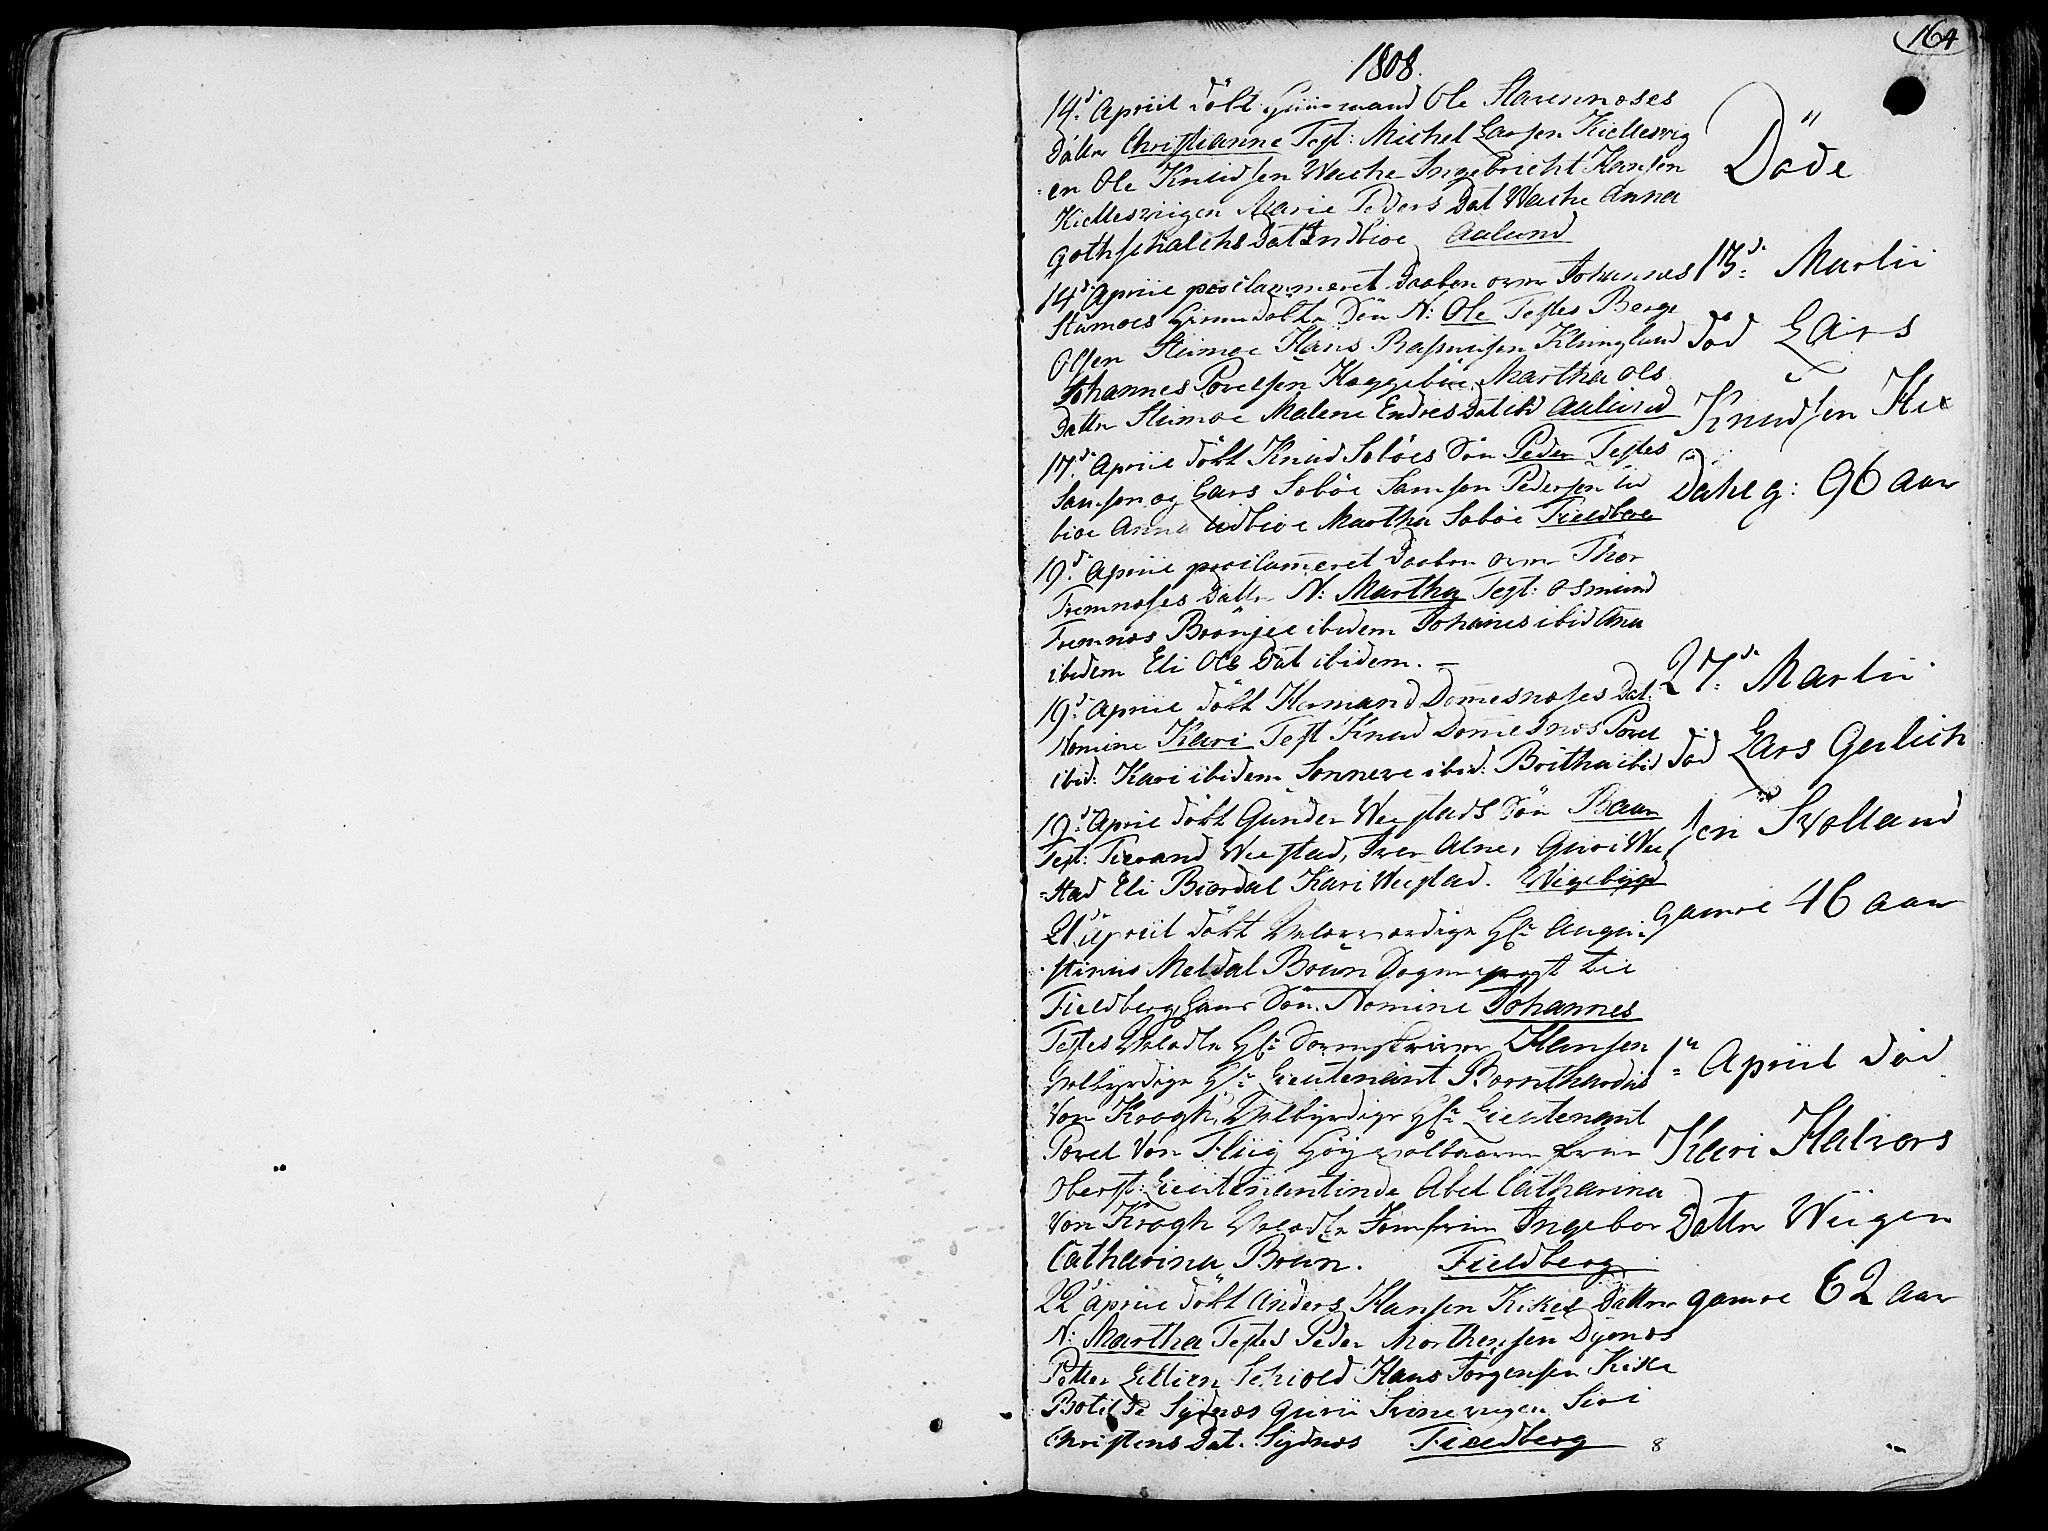 164
1808.
14de Apriil döbt Huusmand Ole Starennæses
Datter Christianne Test: Michel Larsen Kiellesvig
en Ole Knudsen Wache Ingebricht Hansen
Kiellesviigen Marie Peders Dat Wache Anna
Gothschalchs Dat Indbioe Aalund
14de Apriil proclammeret Daaben over Johannes
Stumoes Hiemdöbte Sön N: Ole Testes Berge
Olsen Stumoe Hans Rasmusen Klunglund
Johannes Povelsen Haggeböe Martha Ols
Datter Stumoe Malene Endres Dat ibid Aalund
17de Apriil döbt Knud Soböes Sön Peder Testes
Samson og Lars Soböe Samson Pedersen Ud
bioe Anna Udbioe Martha Soböe Fieldberg
19de Apriil proclammeret Daaben over Thor
Fremnæses Datter N: Martha Test: Osmund
Fremnæs Brönjel ibidem Johanes ibid Ana
ibidem Eli Ols Dat ibidem.
19de Apriil döbt Hermand Dommesnæses Dat:
Nomine Kari Test Knud Dommesnæs Povel
ibid: Kari ibidem Sonneve ibid: Britha ibid
19de Apriil döbt Gunder Weestads Sön Baar
Test: Tierand Weestad, Iver Alne, Guri Wee
stad Eli Biordal Kari Weestad. Wigebygd
21de Apriil döbt Velærværdige Hr: Augu
stinus Meldal Bruun Sognepræst til
Fieldberg hans Sön Nomine Johannes
Testes Velædle Hr: Sorenskriver Hansen
Velbyrdige Hr: Lieutenant Bernthardus
Von Krogh, Velbyrdige Hr: Lieutenant
Povel Von Flüg Höyvelbaarne Frue
Oberst: Lieutenantinde Abel Catharina
Von Krogh Velædle Jomfrue Ingebor
Catharina Bruun. Fieldberg
22de Apriil döbt Anders Hansen Kikes Datter
N: Martha Testes Peder Morthensen Dyenæs
Petter Lillien Schiold Hans Jörgensen Kike
Botilde Sydnæs Guri Svinevigen Siri
Christens Dat. Sydnæs Fieldberg
8
Döde
13de Martii
död Lars
Knudsen Hu
Dahl g: 96 Aar
27de Martii
död Lars Gerlich
sen Svolland
gamel 46 Aar
1te Apriil död
Kari Halvors
Datter Wiigen
gamel 62 Aar